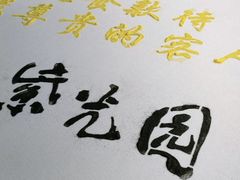 款待
尊贵的客人
紫光园